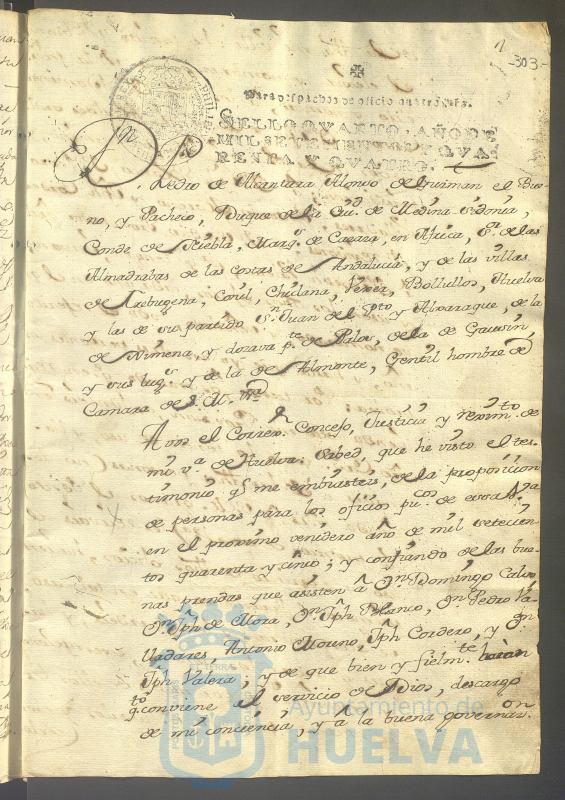 1
-303-
Para despachos de oficio quatro mrs.
SELLO QVARTO, AÑO DE
MIL SETECIENTOS Y QVA
RENTA Y QVATRO.
Dn Pedro de Alcantara Alonso de Guzman el Bue-
no, y Pacheco, Duque de la Ciud. de Medina sidonia,
Conde de Niebla, Marq.s de Cazaza, en Africa, S.r de las
Almadrabas de las costas de Andalucia, y de las villas
de Trebugena, Conil, Chiclana, Vexer, Bollullos, Huelva
y las de su partido Sn Juan del Pto y Alxaraque, de la
de Ximena, y dozava pte de Palos, de la de Gausin,
y sus lug.s y de la de Almonte, Gentil hombre de
Camara de S. M. &a
A vos el Correx.or Concejo, Justicia y Reximto de
mi v.a de Huelva: Sabed, que he visto el tes-
timonio q.e me embiasteis, de la proposicion
de personas para los oficios pu.cos de essa v.a
en el proximo venidero año de mil setecien-
tos quarenta y cinco; y confiando de las bue-
nas prendas que asisten à Dn Domingo
Dn Jph de Mora, Dn Jph Blanco, Dn Pedro Va-
lladares, Antonio Moreno, Jph Cordero, y Dn
Jph Valera; y de que bien y fielm.te haràn
lo q. conviene al servicio de Dios, descargo
de mi conciencia, y à la buena governa.on
Ayuntamiento de
HUELVA